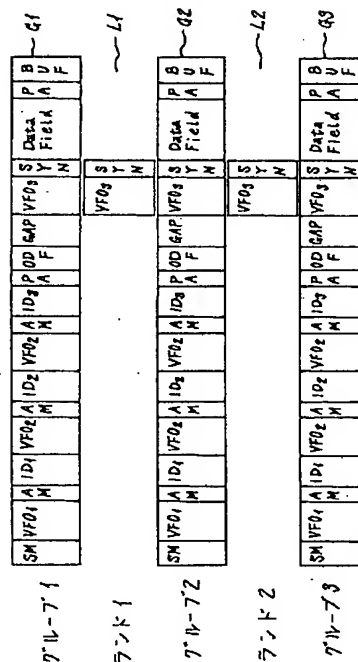 グループ1 SM VFO1 AM ID1 VFO2 AM ID2 VFO2 AM ID3 PA ODF GAP VFO3 SYN Data Field PA BUF G1
ランド1 VFO3 SYN L1
グループ2 SM VFO1 AM ID1 VFO2 AM ID2 VFO2 AM ID3 PA ODF GAP VFO3 SYN Data Field PA BUF G2
ランド2 VFO3 SYN L2
グループ3 SM VFO1 AM ID1 VFO2 AM ID2 VFO2 AM ID3 PA ODF GAP VFO3 SYN Data Field PA BUF G3